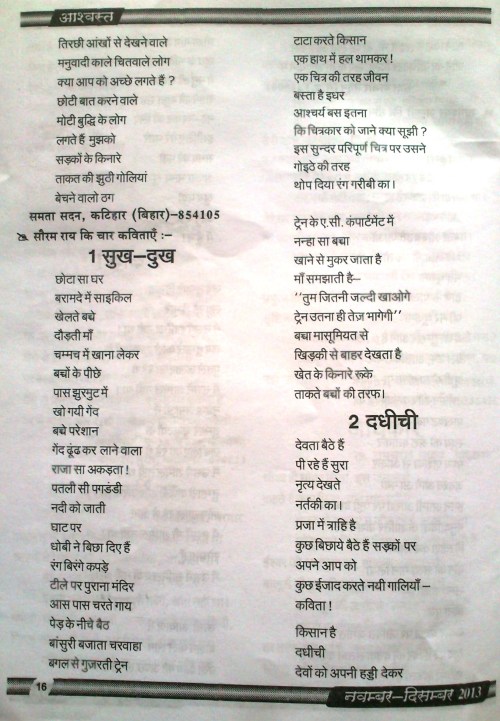 आश्वस्त
तिरछी आंखों से देखने वाले
मनुवादी काले चितवाले लोग
क्या आप को अच्छे लगते हैं ?
छोटी बात करने वाले
मोटी बुद्धि के लोग
लगते हैं मुझको
सड़कों के किनारे
ताकत की झुठी गोलियां
बेचने वालो ठग
समता सदन, कटिहार (बिहार)–854105
सौरम राय कि चार कविताएँ :–
1 सुख–दुख
छोटा सा घर
बरामदे में साइकिल
खेलते बच्चे
दौड़ती माँ
चम्मच में खाना लेकर
बच्चों के पीछे
पास झुरमुट में
खो गयी गेंव
बच्चे परेशान
गेंद ढूंढ कर लाने वाला
राजा सा अकड़ता !
पतली सी पगडंडी
नदी को जाती
घाट पर
धोबी ने बिछा दिए हैं
रंग बिरंगे कपड़े
टीले पर पुराना मंदिर
आस पास चरते गाय
पेड़ के नीचे बैठ
बांसुरी बजाता चरवाहा
बगल से गुजरती ट्रेन
टाटा करते किसान
एक हाथ में हल थामकर !
एक चित्र की तरह जीवन
बस्ता है इधर
आश्चर्य बस इतना
कि चित्रकार को जाने क्या सूझी ?
इस सुन्दर परिपूर्ण चित्र पर उसने
गोइठे की तरह
थोप दिया रंग गरीबी का।
ट्रेन के ए.सी. कंपार्टमेंट में
नन्हा सा बच्चा
खाने से मुकर जाता है
माँ समझाती है–
''तुम जितनी जल्दी खाओगे
ट्रेन उतना ही तेज़ भागेगी''
बच्चा मासूमियत से
खिड़की से बाहर देखता है
खेत के किनारे रूके
ताकते बच्चों की तरफ।
2 दधीची
देवता बैठे हैं
पी रहे हैं सुरा
नृत्य देखते
नर्तकी का।
प्रजा में त्राहि है
कुछ बिछाये बैठे हैं सड़कों पर
अपने आप को
कुछ ईजाद करते नयी गालियाँ –
कविता !
किसान है
दधीची
देवों को अपनी हड्डी देकर
16
नवम्बर–दिसम्बर 2013